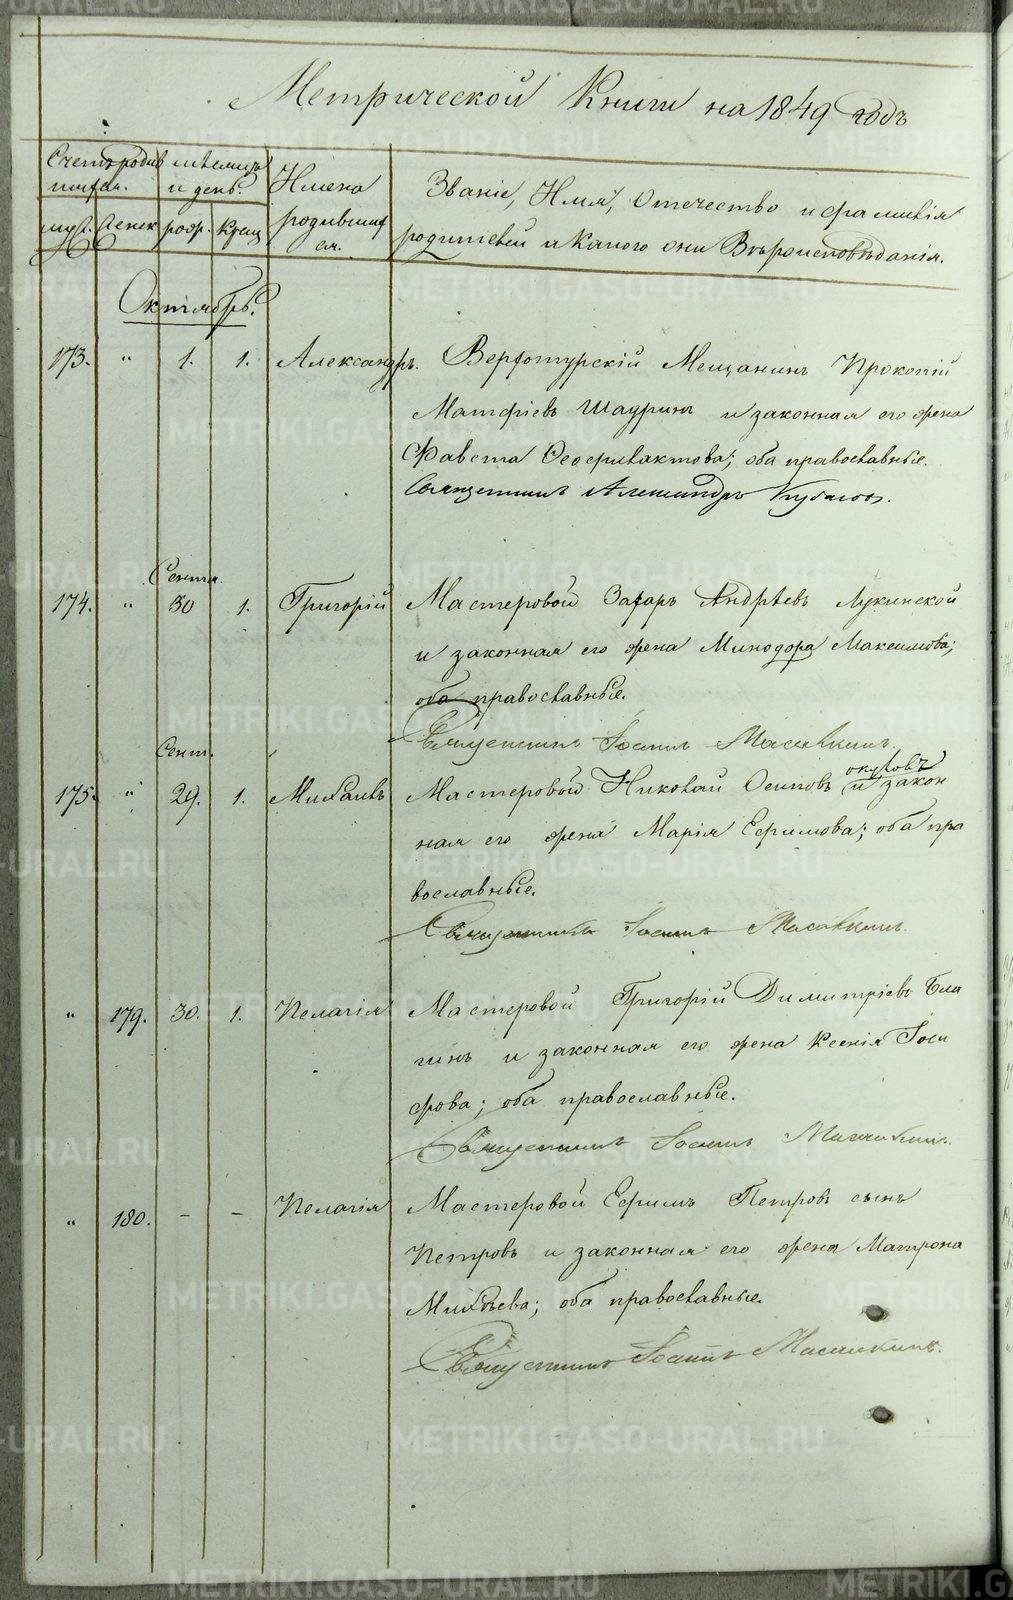 Метрической Книги на 1849 годъ
Счетъ родившихся. мѣсяцъ и день. Имена родившихся. Званіе, Имя, Отечество и фамилія
муж. женск рожд. Крещ родителей и Какого они Вѣроисповѣданія.
Октябрь.
173. „ 1. 1. Александръ. Верхотурскій Мещанинъ Прокопій
Матфіевъ Шауринъ и законная его жена
Фавста Феофилактова; оба православные.
Священникъ Александръ
Сентя.
174. „ 30 1. Григорій Мастеровой Захаръ Андрѣевъ Лукинской
и законная его жена Минодора Максимова;
оба православные.
Священникъ Іоаннъ
Сент.
окуловъ
175. „ 29. 1. Михаилъ Мастеровой Николай Осиповъ и закон
ная его жена Марія Ефимова; оба пра
вославные.
Священникъ Іоаннъ
„ 179. 30. 1. Пелагія Мастеровой Григорій Димитріевъ Ела
гинъ и законная его жена Ксенія Іоси
фова; оба православные.
Священникъ Іоаннъ
„ 180. – – Пелагія Мастеровой Ефимъ Петровъ сынъ
Петровъ и законная его жена Матрона
Михѣева; оба православные.
Священникъ Іоаннъ
METRIKI.GASO-URAL.RU